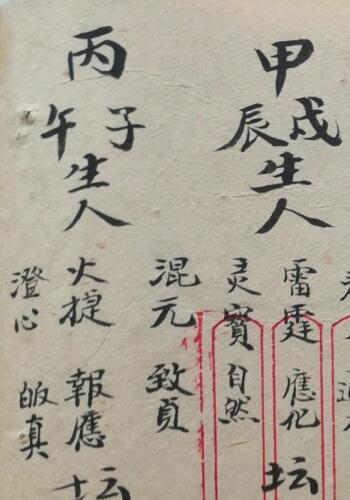 甲
戌辰
生人
雷霆 應化 坛
灵寳 自然
混元 致真
丙
子午
生人
火提 報應 坛
澄心 皈真